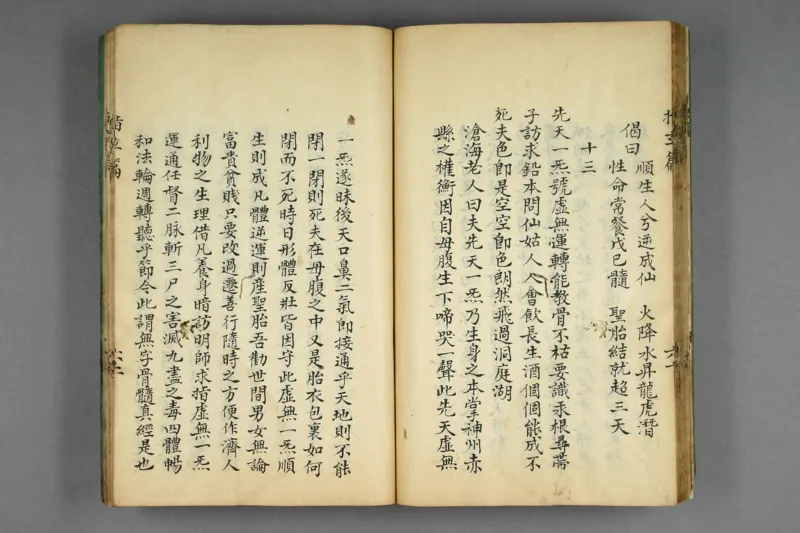 偈曰
順生人兮逆成仙 火降水昇龍虎潛
性命常餐戊己髓 聖胎結就超三天
十三
先天一炁號虛無運轉能教骨不枯要識汞根尋蒂
子訪求鉛本問仙姑人人會飲長生酒個個能成不
死夫色即是空空即色朗然飛過洞庭湖
滄海老人曰夫先天一炁乃生身之本掌神州赤
縣之權衡因自母腹生下啼哭一聲此先天虛無
一炁遂昧後天口鼻二氣即接通乎天地則不能
閉一閉則死夫在母腹之中又是胎衣包裹如何
閉而不死時日形體反壯皆因守此虛無一炁順
生則成凡體逆運則產聖胎吾勸世間男女無論
富貴貧賤只要改過遷善行隨時之方便作濟人
利物之生理借凡養身暗訪明師求指虛無一炁
運通任督二脉斬三尸之害滅九蠱之毒四體暢
和法輪週轉聽乎節令此謂無字骨髓真經是也